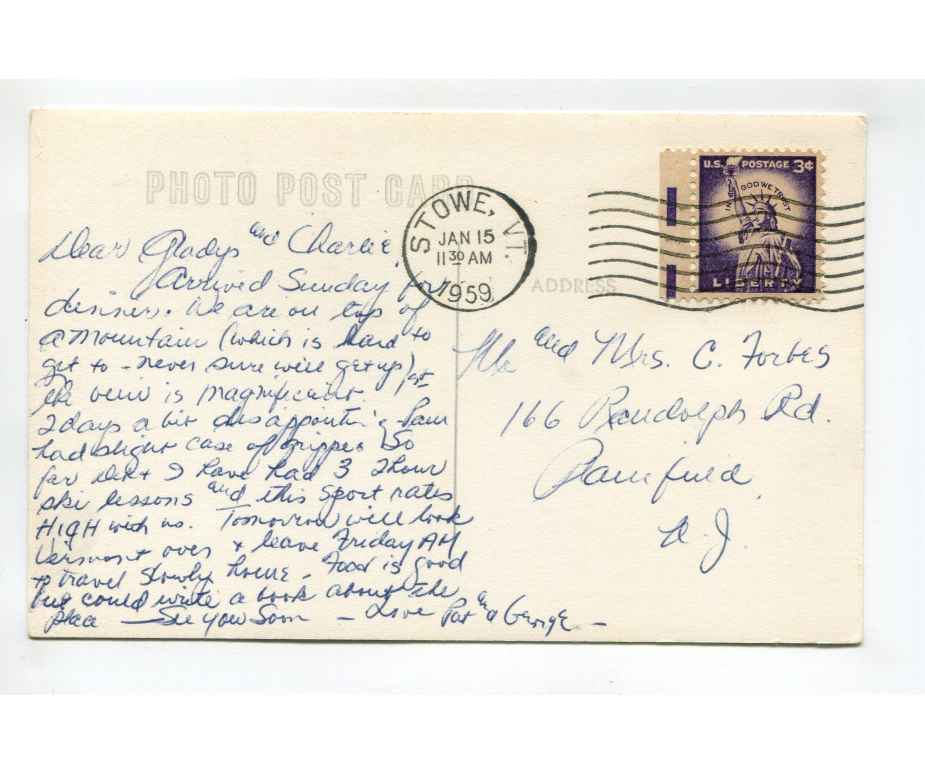 PHOTO POST CARD
STOWE, VT.
JAN 15
11 30 AM
1959
U.S. POSTAGE 3¢
IN GOD WE TRUST
LIBERTY
ADDRESS
Dear Gladys and Charlie,
Arrived Sunday for
dinner. We are on top of
a mountain (which is hard to
get to - never sure we'll get up)
the view is magnificent. 1st
2 days a bit disappointing Pam
had slight case of grippe. So
far I have had 3 2 hour
ski lessons and this sport rates
HIGH with us. Tomorrow will look
Vermont over + leave Friday AM
to travel slowly home - Food is good
but could write a book about the
place - See you Soon - Love Pat and George -
and Mrs. C. Forbes
166 Randolph Rd.
Plainfield
N.J.